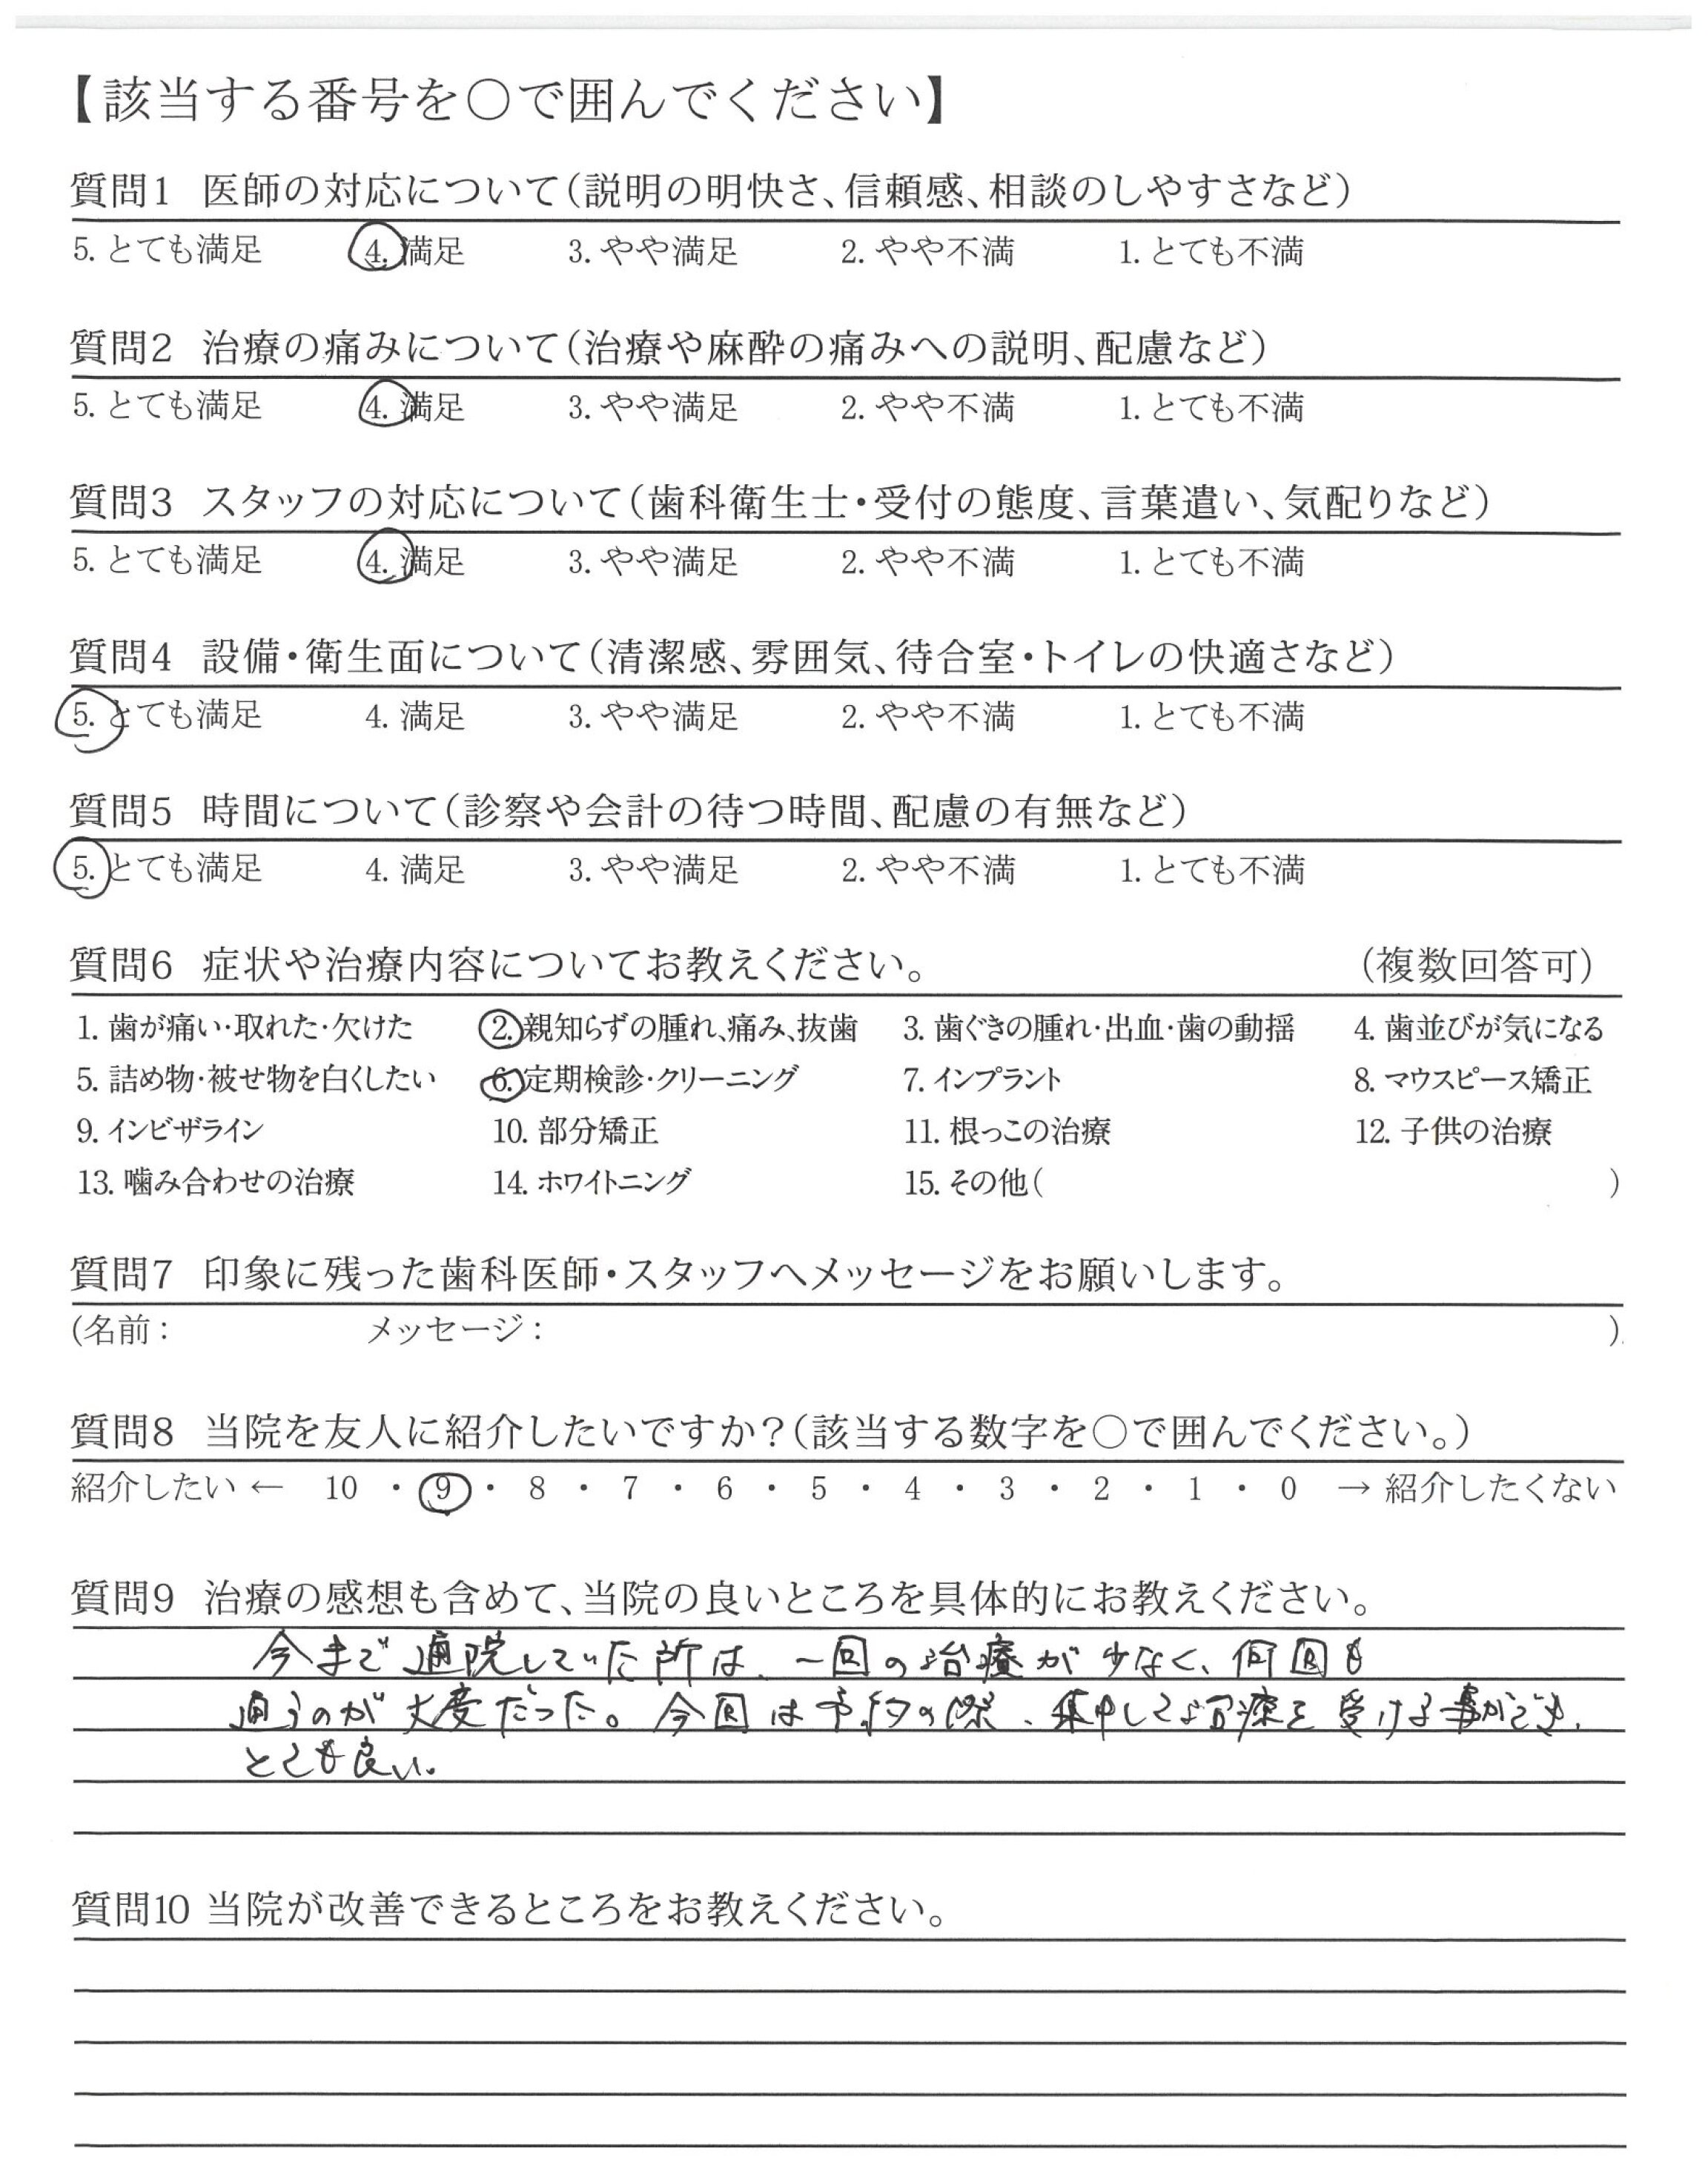 【該当する番号を○で囲んでください】
質問1 医師の対応について（説明の明快さ、信頼感、相談のしやすさなど）
5. とても満足 4. 満足 3. やや満足 2. やや不満 1. とても不満
質問2 治療の痛みについて（治療や麻酔の痛みへの説明、配慮など）
5. とても満足 4. 満足 3. やや満足 2. やや不満 1. とても不満
質問3 スタッフの対応について（歯科衛生士・受付の態度、言葉遣い、気配りなど）
5. とても満足 4. 満足 3. やや満足 2. やや不満 1. とても不満
質問4 設備・衛生面について（清潔感、雰囲気、待合室・トイレの快適さなど）
5. とても満足 4. 満足 3. やや満足 2. やや不満 1. とても不満
質問5 時間について（診察や会計の待つ時間、配慮の有無など）
5. とても満足 4. 満足 3. やや満足 2. やや不満 1. とても不満
質問6 症状や治療内容についてお教えください。 （複数回答可）
1. 歯が痛い・取れた・欠けた 2. 親知らずの腫れ、痛み、抜歯 3. 歯ぐきの腫れ・出血・歯の動揺 4. 歯並びが気になる
5. 詰め物・被せ物を白くしたい 6. 定期検診・クリーニング 7. インプラント 8. マウスピース矯正
9. インビザライン 10. 部分矯正 11. 根っこの治療 12. 子供の治療
13. 噛み合わせの治療 14. ホワイトニング 15. その他（ ）
質問7 印象に残った歯科医師・スタッフへメッセージをお願いします。
(名前： メッセージ： )
質問8 当院を友人に紹介したいですか？（該当する数字を○で囲んでください。）
紹介したい ← 10 ・ 9 ・ 8 ・ 7 ・ 6 ・ 5 ・ 4 ・ 3 ・ 2 ・ 1 ・ 0 → 紹介したくない
質問9 治療の感想も含めて、当院の良いところを具体的にお教えください。
今まで通院していた所は、一回の治療が少なく、何回も
通うのが大変だった。今回は予約の際、集中して治療を受ける事ができ、
とても良い。
質問10 当院が改善できるところをお教えください。